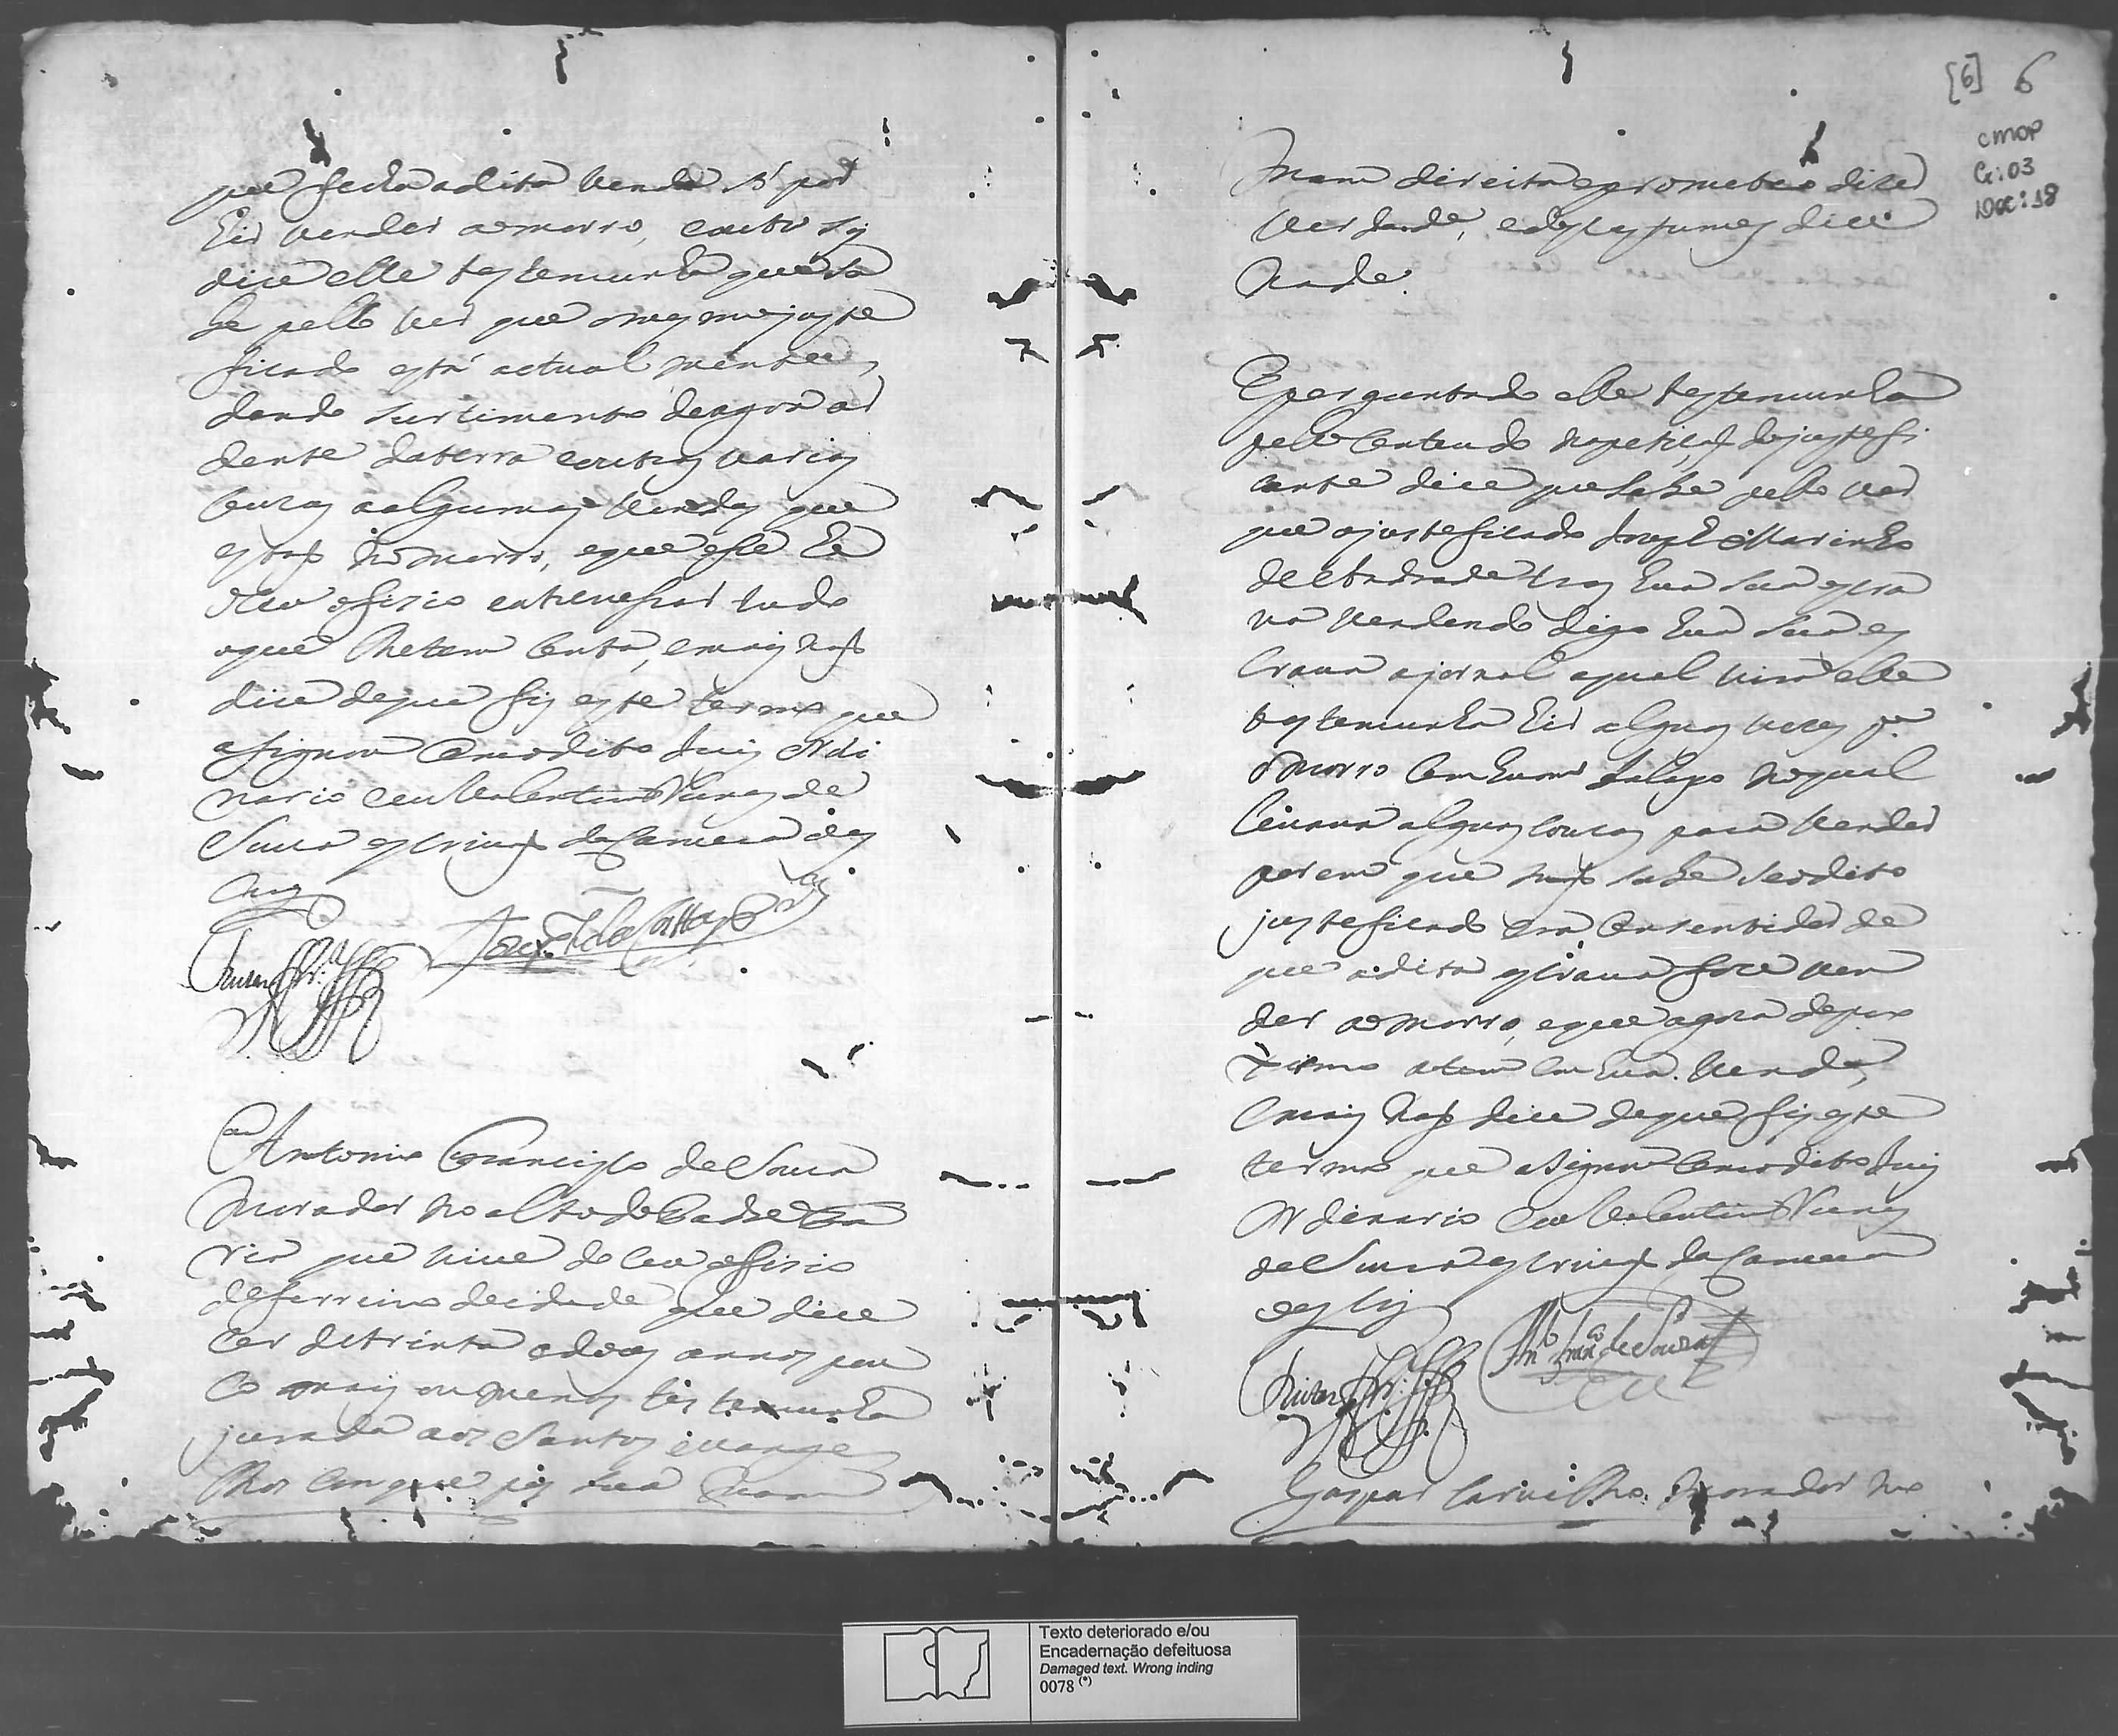 que fecha adita venda só por
hir vender ao morro, e outro sy
dice elle testemunha que sa
be pello ver que o mesmo juste
ficado está actual mente
dando surtimento de agoa ar
dente da terra e outras varias
couzas a algumas vendas que
estaõ no morro, e que esse he
o seu oficio
o que lhe tem conta, e mais naõ
dice de que fis este termo que
asignou com o dito Juis Ordi
nario e eu Valentim Nunes de
Souza escrivaõ da Camera o es
crevy
Antonio Francisco de Souza
morador no alto do Padre Fa
ria que vive do seu oficio
de ferreiro de idade que dice
ser de trinta e dous annos pou
co mais ou menos testemunha
jurada aos Santos evange
lhos em que pos sua mam
[6] 6
CMOP
Cx: 03
Doc: 18
mam direita e prometeo dizer
verdade, e do costume dice
nada.
E perguntado elle testemunha
pello conteudo na petiçaõ do justefi
cante dice que sabe pello ver
que o justeficado Joseph Marinho
de Andrade tras hua sua escra
va vendendo digo hua sua es
crava a jornal a qual vira elle
testemunha hir algũas vezes p.ª
o morro com hum balayo no qual
levava algũas couzas para vender
porem que naõ sabe se o dito
justeficado era consentidor de
que a dita escrava foce ven
der ao morro, e que agora de pro
ximo a tem em hua venda,
e mais naõ dice de que fis este
termo que asignou com o dito Juis
Ordenario e eu Valentim Nunes
de Souza escrivaõ da Camera
o escrevy
An.to Fran.co de Souza
Gaspar Carvalho morador no
Texto deteriorado e/ou
Encadernação defeituosa
Damaged text. Wrong inding
0078 (*)